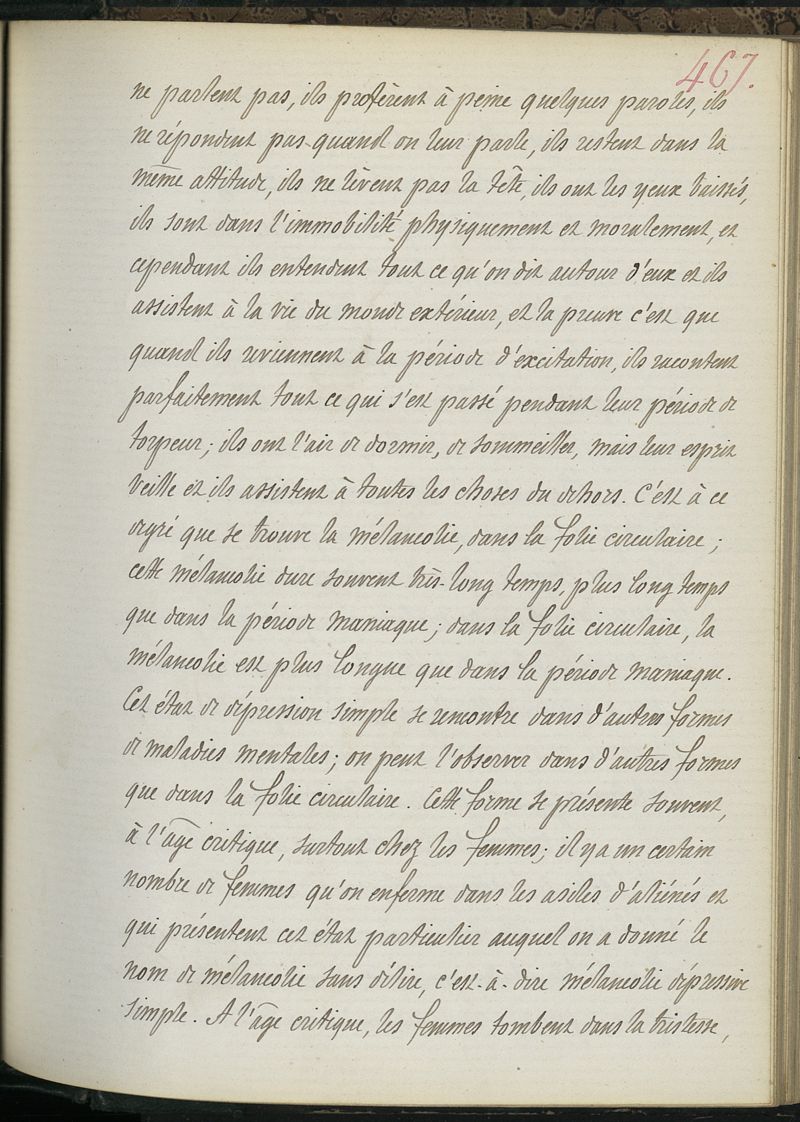 467.
ne parlent pas, ils profèrent à peine quelques paroles, ils
ne répondent pas quand on leur parle, ils restent dans la
même attitude, ils ne lèvent pas la tête, ils ont les yeux baissés,
ils sont dans l'immobilité physiquement et moralement, et
cependant ils entendent tout ce qu'on dit autour d'eux et ils
assistent à la vie du monde extérieur, et la preuve c'est que
quand ils reviennent à la période d'excitation, ils racontent
parfaitement tout ce qui s'est passé pendant leur période de
torpeur; ils ont l'air de dormir, de sommeiller, mais leur esprit
veille et ils assistent à toutes les choses du dehors. C'est à ce
degré que se trouve la mélancolie, dans la folie circulaire;
cette mélancolie dure souvent très-long temps, plus long temps
que dans la période maniaque; dans la folie circulaire, la
mélancolie est plus longue que dans la période maniaque.
Cet état de dépression simple se rencontre dans d'autres formes
de maladies mentales; on peut l'observer dans d'autres formes
que dans la folie circulaire. Cette forme se présente souvent,
à l'âge critique, surtout chez les femmes; il y a un certain
nombre de femmes qu'on enferme dans les asiles d'aliénés et
qui présentent cet état particulier auquel on a donné le
nom de mélancolie sans délire, c'est-à-dire mélancolie dépressive
simple. A l'âge critique, les femmes tombent dans la tristesse,